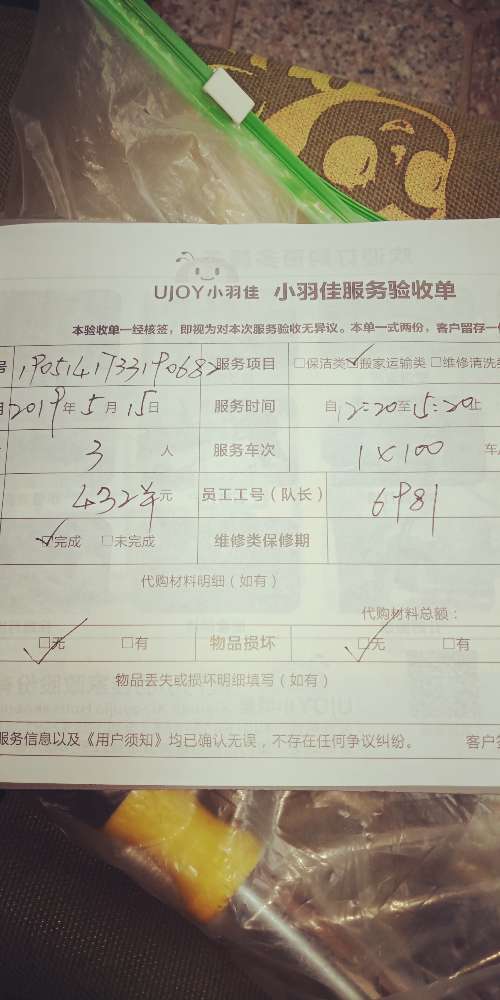 UJOY小羽佳 小羽佳服务验收单
本验收单一经核签，即视为对本次服务验收无异议。本单一式两份，客户留存一
号 1905141733190682 服务项目 □保洁类 ☑搬家运输类 □维修清洗
2019年5月15日 服务时间 自12:20至15:20止
3 人 服务车次 1×100 车
432¥元 员工工号（队长） 6981
☑完成 □未完成 维修类保修期
代购材料明细（如有）
代购材料总额：
☑无 □有 物品损坏 ☑无 □有
物品丢失或损坏明细填写（如有）
服务信息以及《用户须知》均已确认无误，不存在任何争议纠纷。 客户